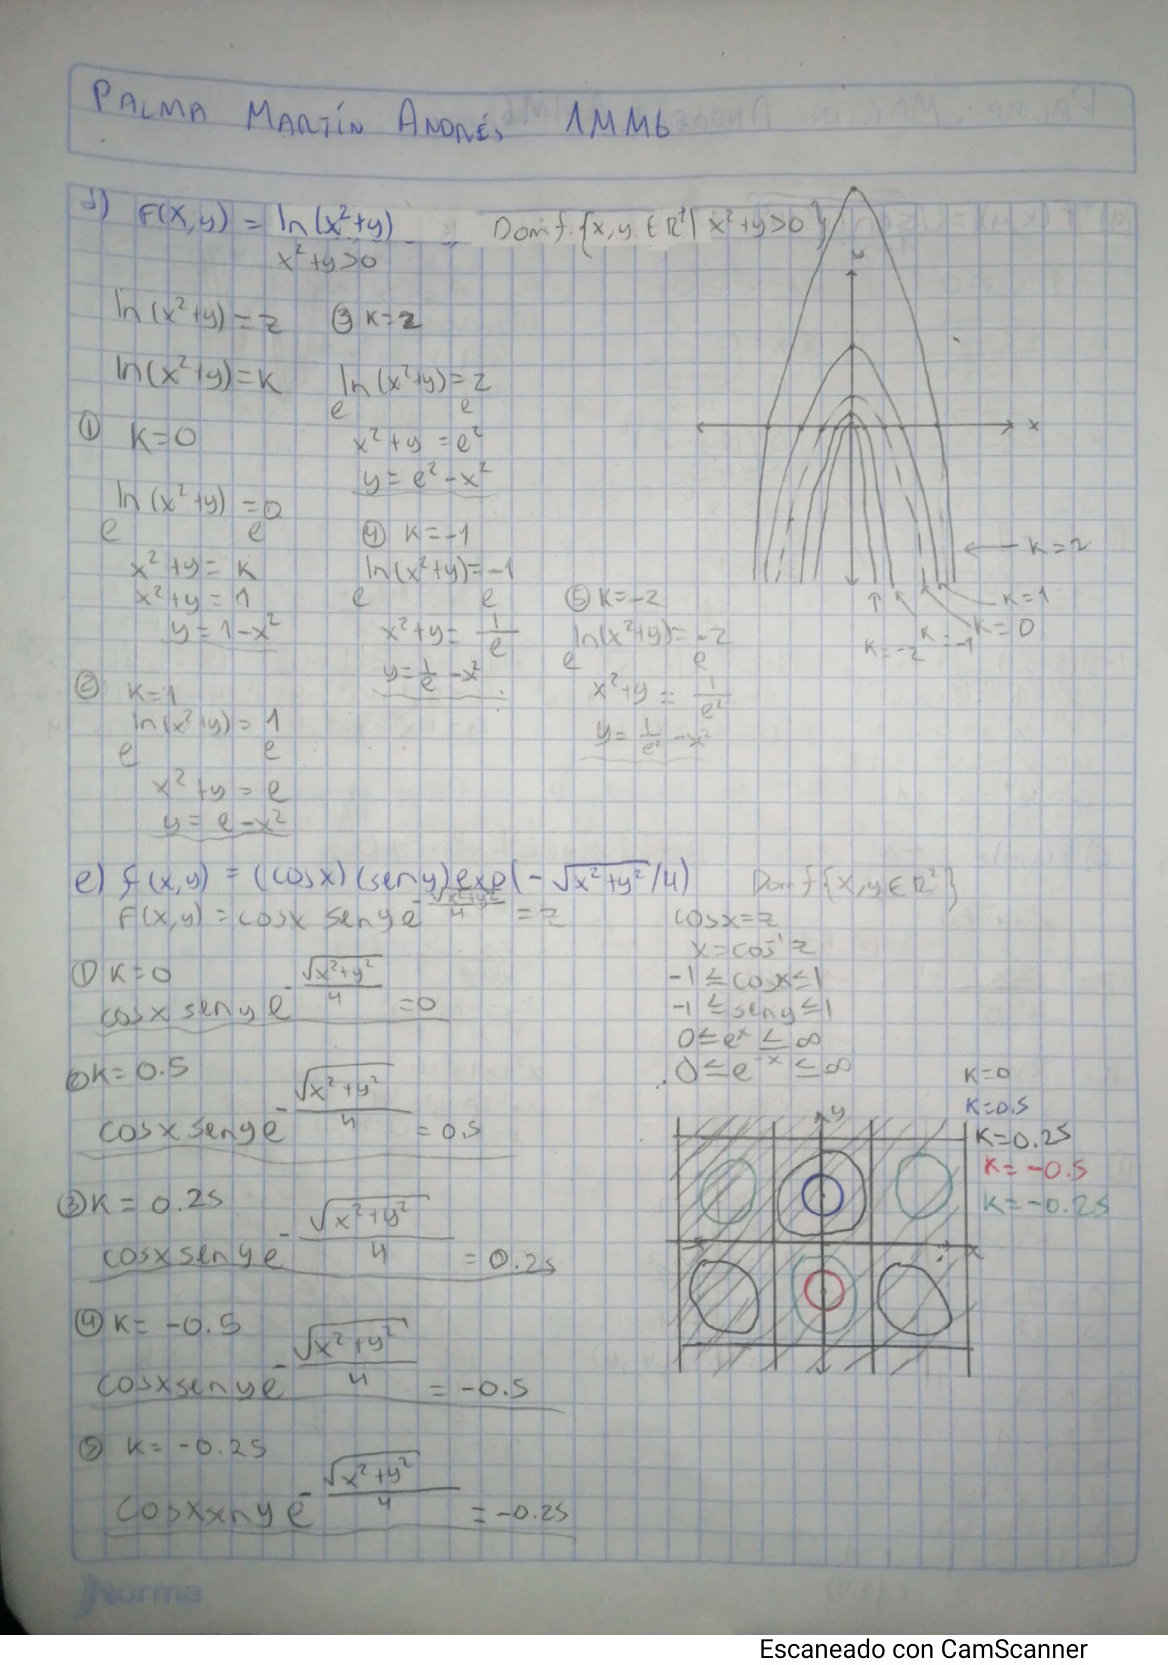 PALMA MARTÍN ANDRÉS 1MM6
d) F(x,y) = ln(x²+y) Dom f {x,y ∈ R² | x²+y>0}
x²+y>0
ln(x²+y) = z
ln(x²+y) = K
① K=0
ln(x²+y) = 0
e e
x²+y = K
x²+y = 1
y = 1-x²
② K=1
ln(x²+y) = 1
e e
x²+y = e
y = e-x²
③ K=2
ln(x²+y) = 2
e e
x²+y = e²
y = e²-x²
④ K=-1
ln(x²+y) = -1
e e
x²+y = 1/e
y = 1/e -x²
⑤ K=-2
ln(x²+y) = -2
e e
x²+y = 1/e²
y = 1/e² -x²
y
x
K=2
K=1
K=0
K=-1
K=-2
e) f(x,y) = (cosx)(seny)exp(-√x²+y²/4) Dom f {x,y ∈ R²}
F(x,y) = cosx seny e^-√x²+y²/4 = z
① K=0
cosx seny e^-√x²+y²/4 = 0
② K=0.5
cosx seny e^-√x²+y²/4 = 0.5
③ K=0.25
cosx seny e^-√x²+y²/4 = 0.25
④ K=-0.5
cosx seny e^-√x²+y²/4 = -0.5
⑤ K=-0.25
cosx seny e^-√x²+y²/4 = -0.25
cosx=z
x=cos⁻¹z
-1≤cosx≤1
-1≤seny≤1
0≤eˣ≤∞
0≤e⁻ˣ≤∞
K=0
K=0.5
K=0.25
K=-0.5
K=-0.25
y
x
Norma
Escaneado con CamScanner